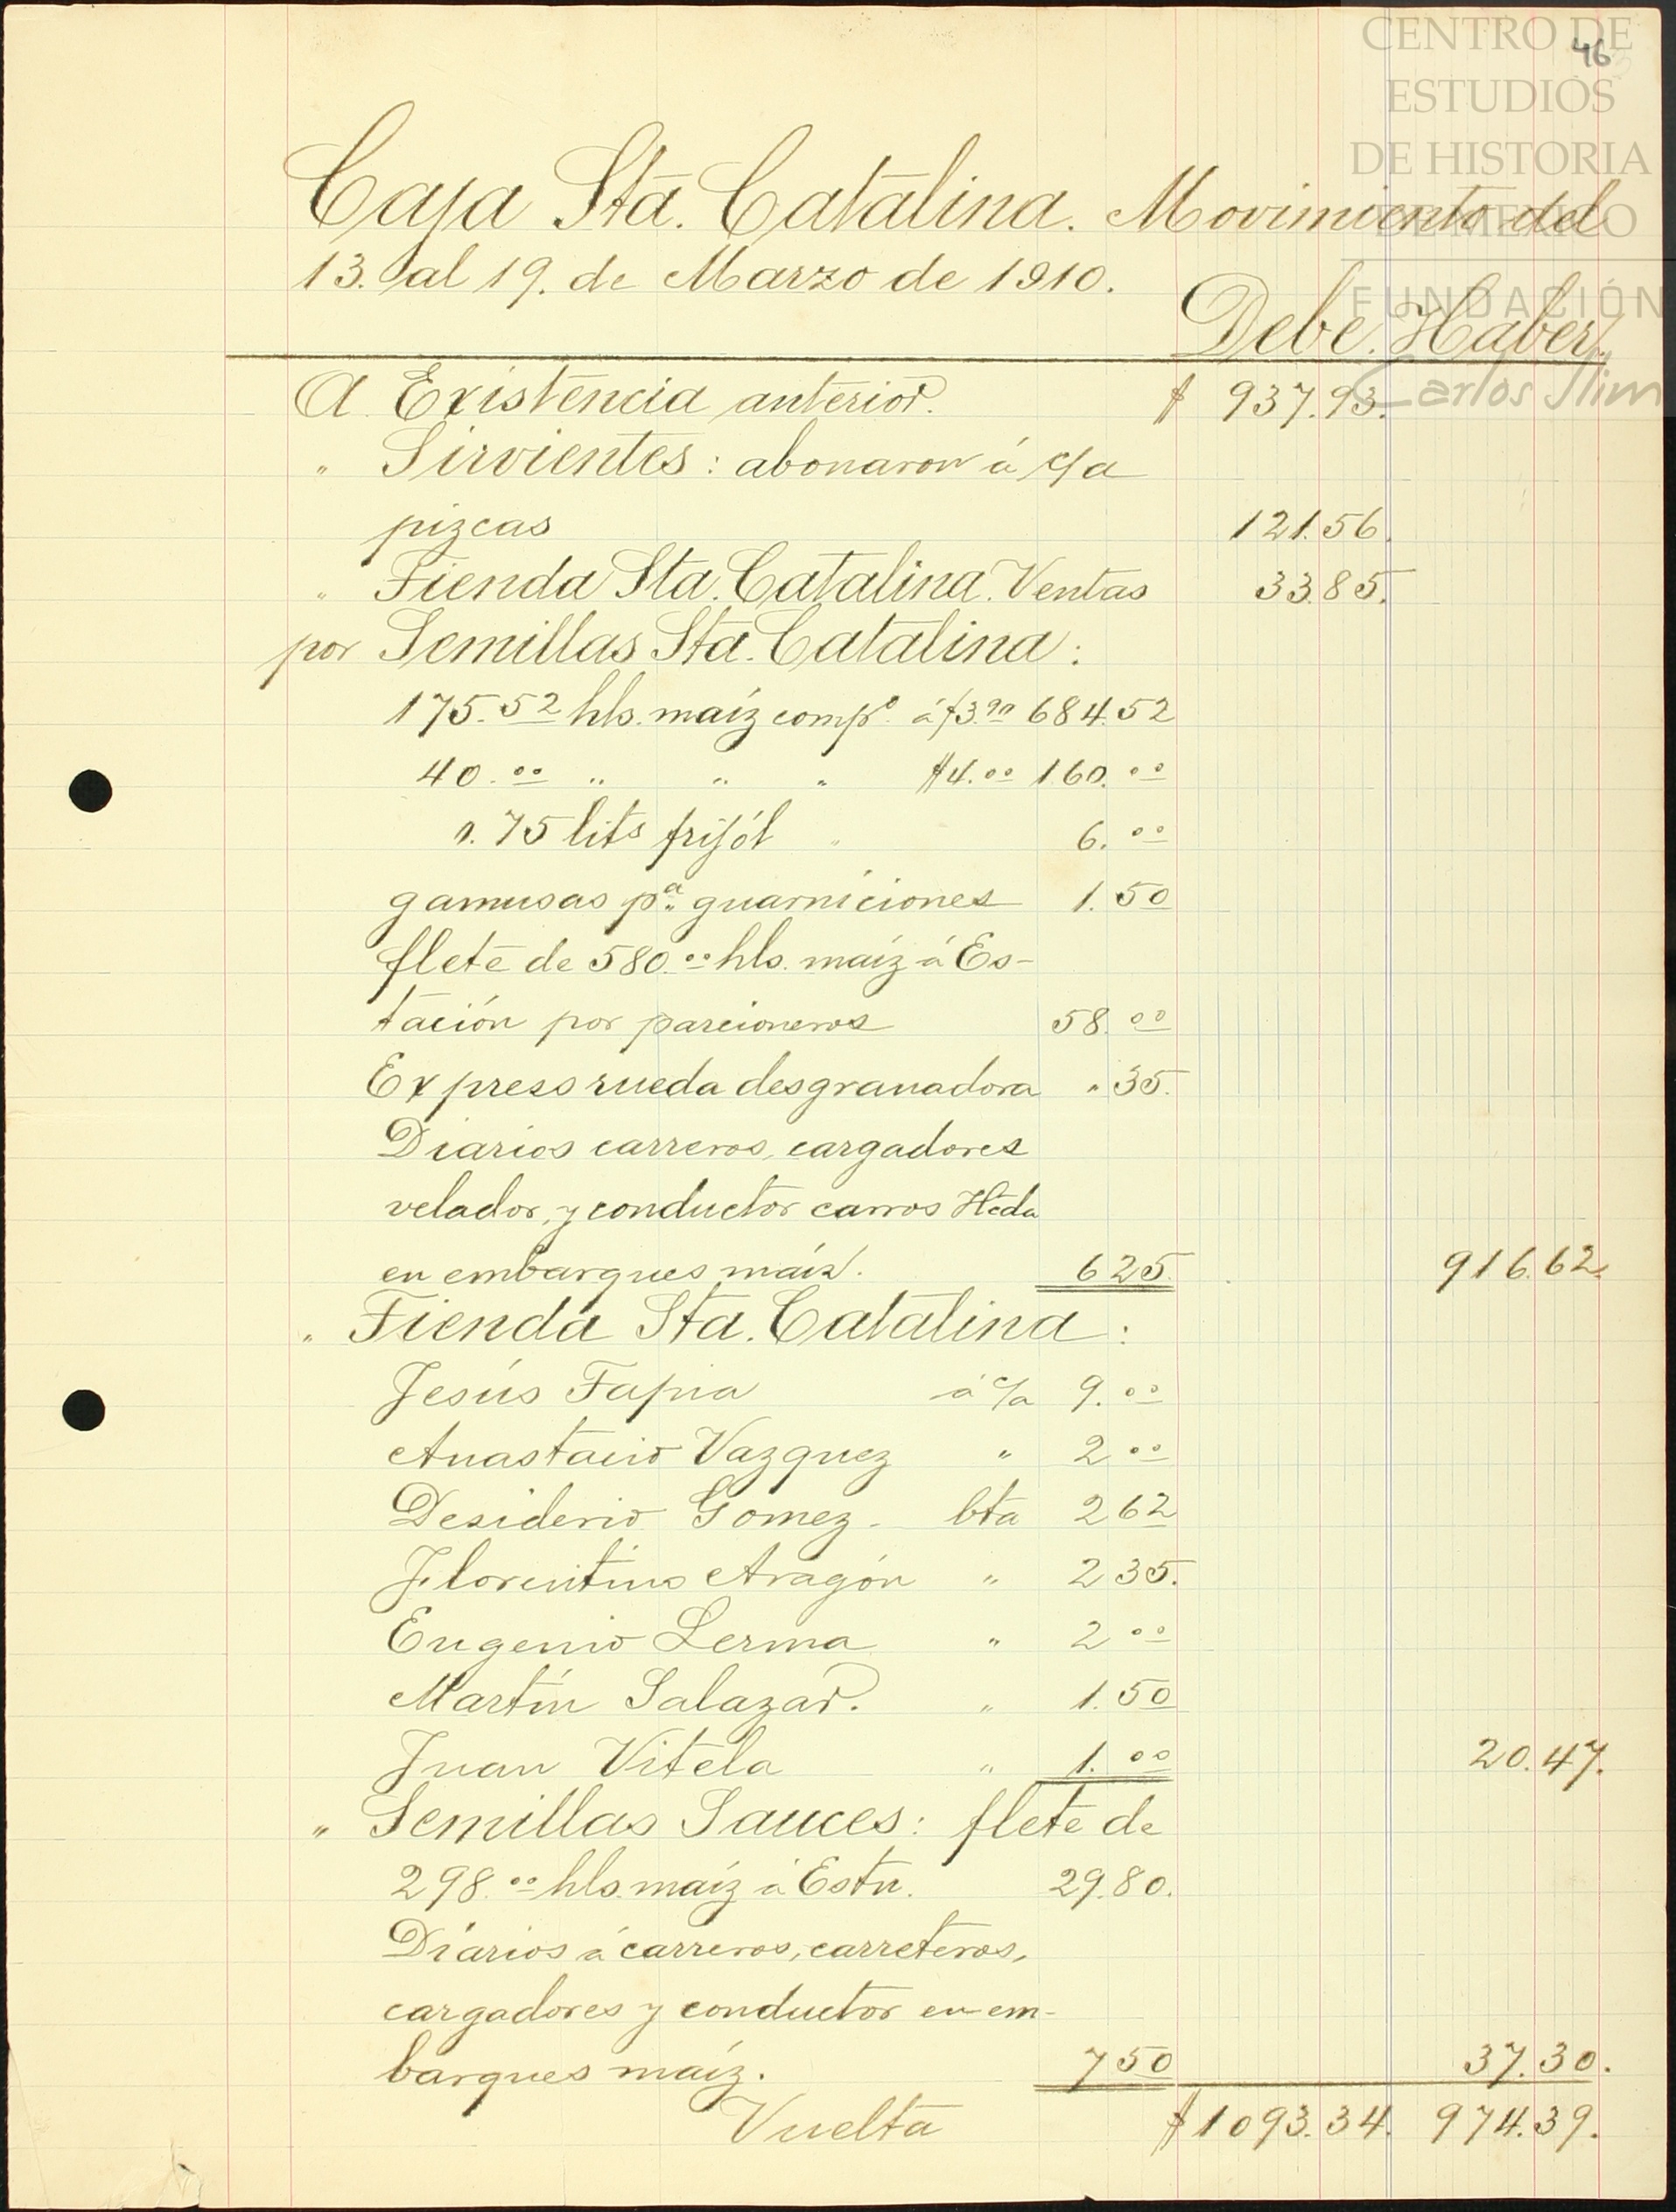 CENTRO DE
ESTUDIOS
DE HISTORIA
DE MÉXICO
FUNDACIÓN
Carlos Slim
46
Caja Sta. Catalina. Movimiento del
13. al 19. de Marzo de 1910.
Debe. Haber.
A Existencia anterior. $ 937.93.
" Sirvientes: abonaron á c/a
pizcas 121.56.
" Tienda Sta. Catalina. Ventas 33.85.
por Semillas Sta. Catalina:
175.52 hls. maíz comp° á $3.90 684.52
40.00 " " " $4.00 160.00
0.75 lits frijól " 6.00
gamusas pa. guarniciones 1.50
flete de 580.00 hls. maíz á Es-
tación por parcioneros 58.00
Express rueda desgranadora " 35.
Diarios carreros, cargadores
velador, y conductor carros Hcda
en embarques maíz. 625. 916.62.
" Tienda Sta. Catalina:
Jesús Tapia á c/a 9.00
Anastacio Vazquez " 2 00
Desiderio Gomez. bta 2 62
Florentino Aragón " 2 35.
Eugenio Lerma " 2 00
Martín Salazar. " 1.50
Juan Vitela " 1.00 20.47.
" Semillas Sauces: flete de
298.00 hls. maíz á Estn. 29.80.
Diarios á carreros, carreteros,
cargadores y conductor en em-
barques maíz. 7 50 37.30.
Vuelta $ 1093.34. 974.39.